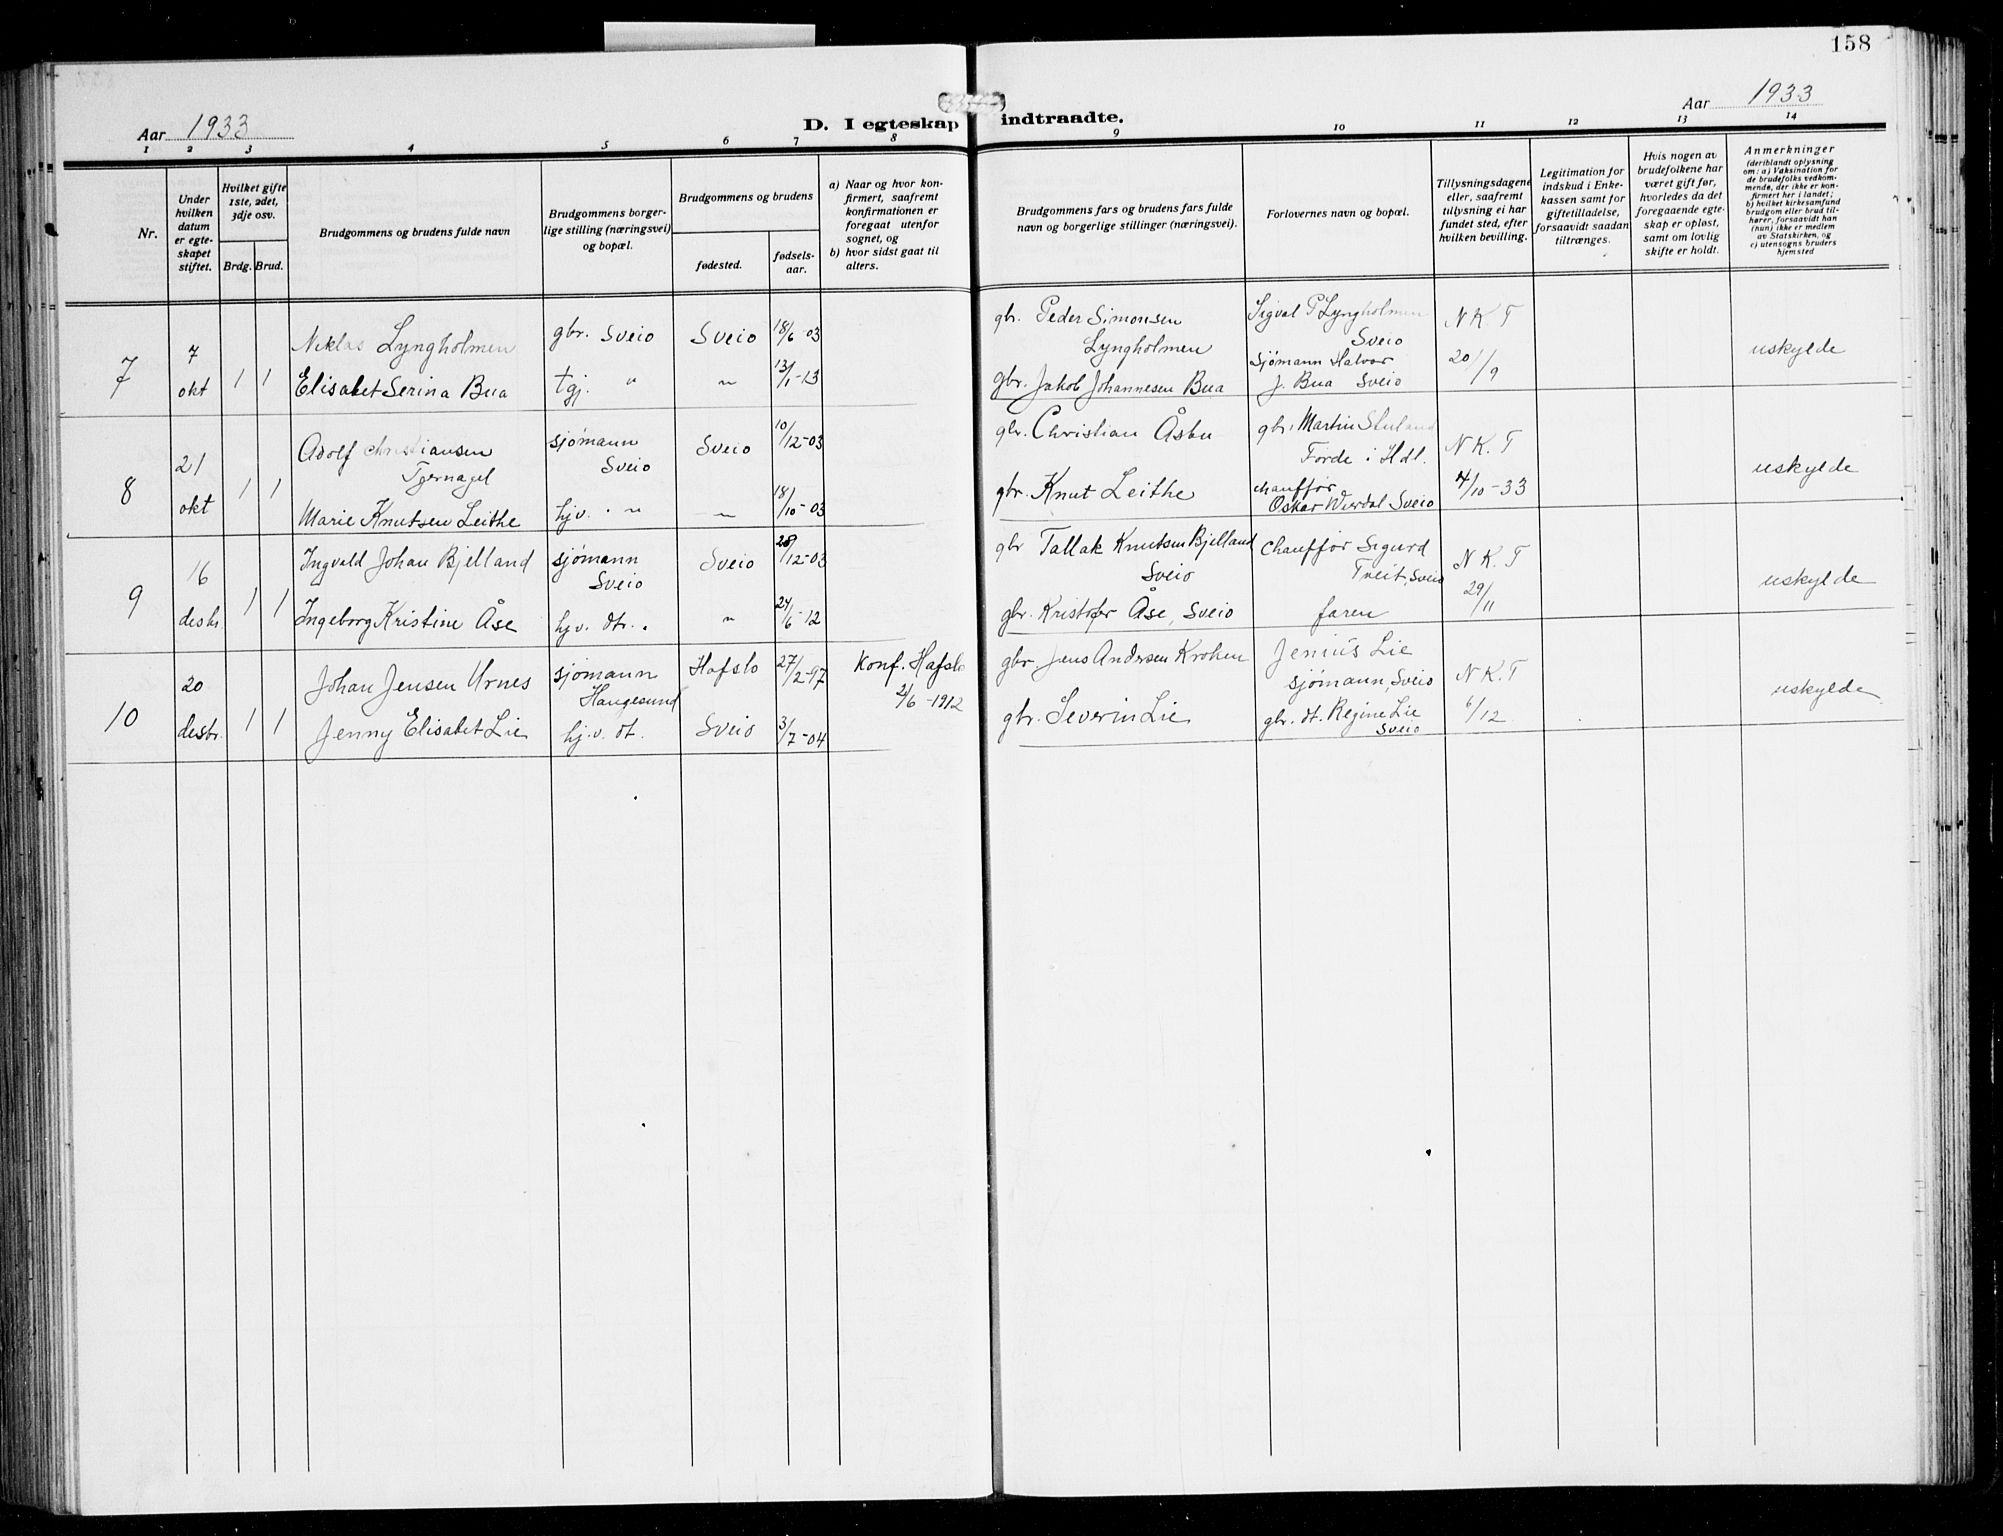 158
Aar 1933
D. I egteskap indtraadte.
Aar 1933
1 2 3 4 5 6 7 8 9 10 11 12 13 14
Nr.
Under hvilken datum er egteskapet stiftet.
Hvilket gifte 1ste, 2det, 3dje osv.
Brdg. Brud.
Brudgommens og brudens fulde navn
Brudgommens borgerlige stilling (næringsvei) og bopæl.
Brudgommens og brudens
fødested.
fødselsaar.
a) Naar og hvor konfirmert, saafremt konfirmationen er foregaat utenfor sognet, og
b) hvor sidst gaat til alters.
Brudgommens fars og brudens fars fulde navn og borgerlige stillinger (næringsvei).
Forlovernes navn og bopæl.
Tillysningsdagene eller, saafremt tillysning ei har fundet sted, efter hvilken bevilling.
Legitimation for indskud i Enkekassen samt for giftetilladelse, forsaavidt saadan tiltrænges.
Hvis nogen av brudefolkene har været gift før, hvorledes da det foregaaende egteskap er opløst, samt om lovlig skifte er holdt.
Anmerkninger (deriblandt oplysning om: a) Vaksination for de brudefolks vedkommende, der ikke er konfirmert her i landet; b) hvilket kirkesamfund brudgom eller brud tilhører, forsaavidt han (hun) ikke er medlem av Statskirken, og c) utensogns bruders hjemsted
7 7 okt 1 1
Niklas Lyngholmen gbr. Sveio Sveio 18/6-03
Elisabet Serina Bua tgj. " " 13/1-13
gbr. Peder Simonsen Lyngholmen
gbr. Jakob Johannesen Bua
Sigval P Lyngholmen Sveio
Sjømann Halvor J. Bua Sveio
N K. T 20/9
uskylde
8 21 okt 1 1
Adolf Christiansen Tjernagel sjømann Sveio Sveio 10/12-03
Marie Knutsen Leithe hjv. " " 18/10-03
gbr. Christian Åsbu
gbr. Knut Leithe
gbr. Martin
Førde i Hdl.
chauffør Oskar Sveio
N K. T 4/10-33
uskylde
9 16 desbr. 1 1
Ingvald Johan Bjelland sjømann Sveio Sveio 28/12-03
Ingeborg Kristine Åse hjv. dtr. " 24/6-12
gbr Tallak Knutsen Bjelland Sveio
gbr. Kristofer Åse, Sveio
Chauffør Sigurd Tveit, Sveio
faren
N K. T 29/11
uskylde
10 20 desbr. 1 1
Johan Jensen Urnes sjømann Haugesund Hafslo 27/2-97 Konf. Hafslo 2/6-1912
Jenny Elisabet Lie hj.v. dt. Sveio 3/7-04
gbr. Jens Andersen Kroken
gbr. Severin Lie
Jenius Lie sjømann, Sveio
gbr. dt. Regine Lie Sveio
N K. T 6/12
uskylde